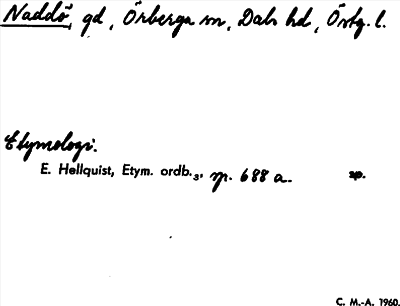 Naddö, gd, Örberga sn, Dals hd, Östg. l.
Etymologi.
E. Hellquist, Etym. ordb.₃, sp. 688 a.
C. M.-A. 1960.